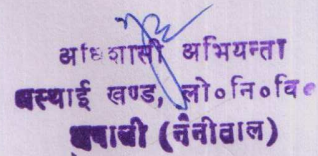 अधिशासी अभियन्ता
अस्थाई खण्ड, लो०नि०वि०
भवाली (नैनीताल)